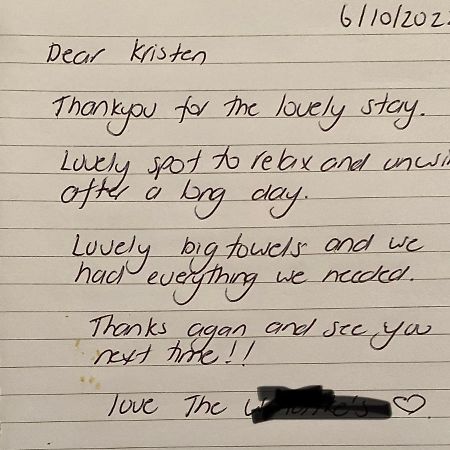 6/10/202
Dear Kristen
Thankyou for the lovely stay.
Lovely spot to relax and
after a long day.
Lovely big towels and we
had everything we needed.
Thanks agan and see you
next time!!
love The